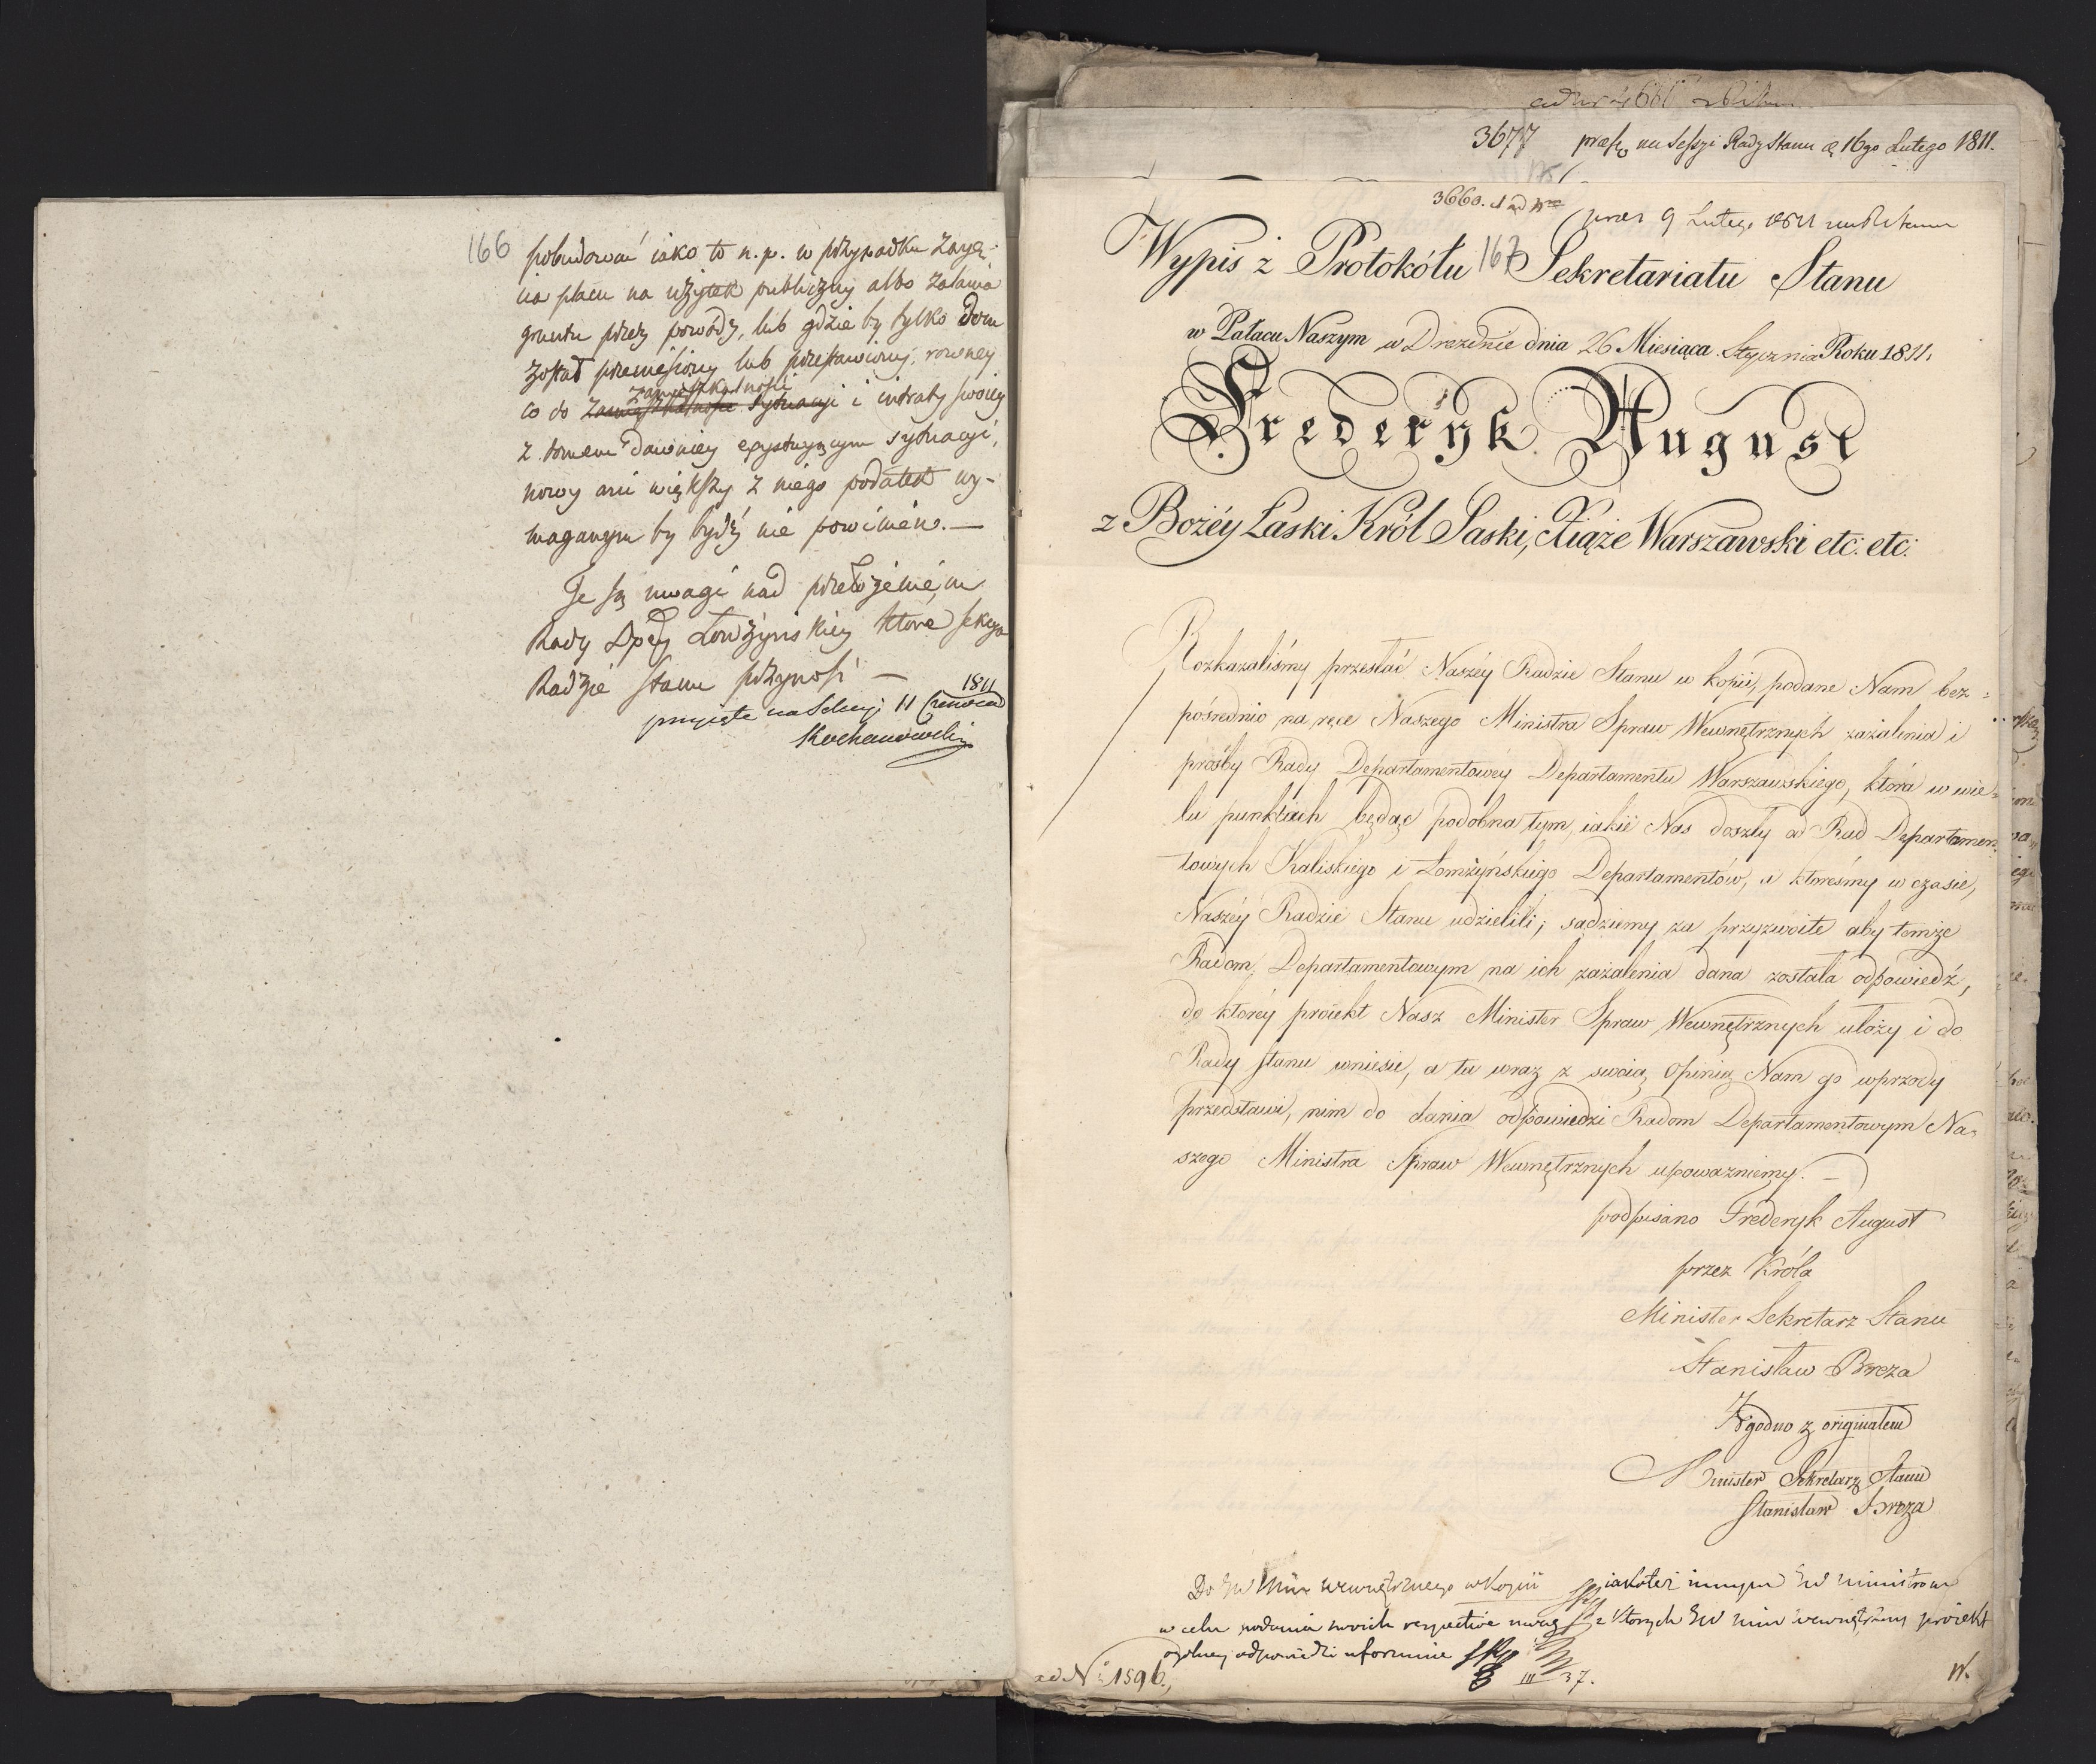 166
pobudował iako to n. p. w przypadku zaję-
cia placu na użytek publiczny albo zalania
gruntu przez powódź, lub gdzie by tylko dom
został przeniesiony lub przestawiony, rowney
zamieszkalności
co do zamieszkalności sytuacyi i intraty swoiey
z domem dawniey exystuiącym sytuacyi,
nowy ani większy z niego podatek wy-
maganym by bydź nie powinien. —
Te są uwagi nad przełożeniem
Rady Dptey Łomżyńskiey które sekcya
Radzie Stanu przynosi —
przyięte na Sekcyi 11 Czerwca 1811
Kochanowski
3677 na Sessyi Rady Stanu d. 16go Lutego 1811.
3660.
9 Lutego 1811
Wypis z Protokółu 167 Sekretariatu Stanu
w Pałacu Naszym w Dreznie dnia 26 Miesiąca Stycznia Roku 1811.
Frederyk August
z Bożéy Łaski Król Saski, Xiąże Warszawski etc: etc:
Rozkazaliśmy przesłać Naszéy Radzie Stanu w kopii, podane Nam bez=
pośrednio na ręce Naszego Ministra Spraw Wewnętrznych zażalenia i
prośby Rady Departamentowéy Departamentu Warszawskiego, która w wie=
lu punktach będąc podobna tym, iakie Nas doszły od Rad Departamen=
towych Kaliskiego i Łomżyńskiego Departamentów, a któreśmy w czasie,
Naszéy Radzie Stanu udzielili; sądziemy za przyzwoite aby temże
Radom Departamentowym na ich zażalenia dana została odpowiedź,
do któréy proiekt Nasz Minister Spraw Wewnętrznych ułoży i do
Rady Stanu wniesie, a ta wraz z swoią Opinią Nam go wprzódy
przedstawi, nim do dania odpowiedzi Radom Departamentowym Na=
szego Ministra Spraw Wewnętrznych upoważniemy. —
podpisano Fréderyk August
przez Króla
Minister Sekretarz Stanu
Stanisław Breza
Zgodno z originałem
Minister Sekretarz Stanu
Stanisław Breza
Do JW Min wewnętrznego w kopii iakoteż innym JW ministrom
w celu podania swoich respective uwag z których JW min wewnętrzny proiekt
ogólney odpowiedzi uformuie
III 37.
ad N: 1596.,